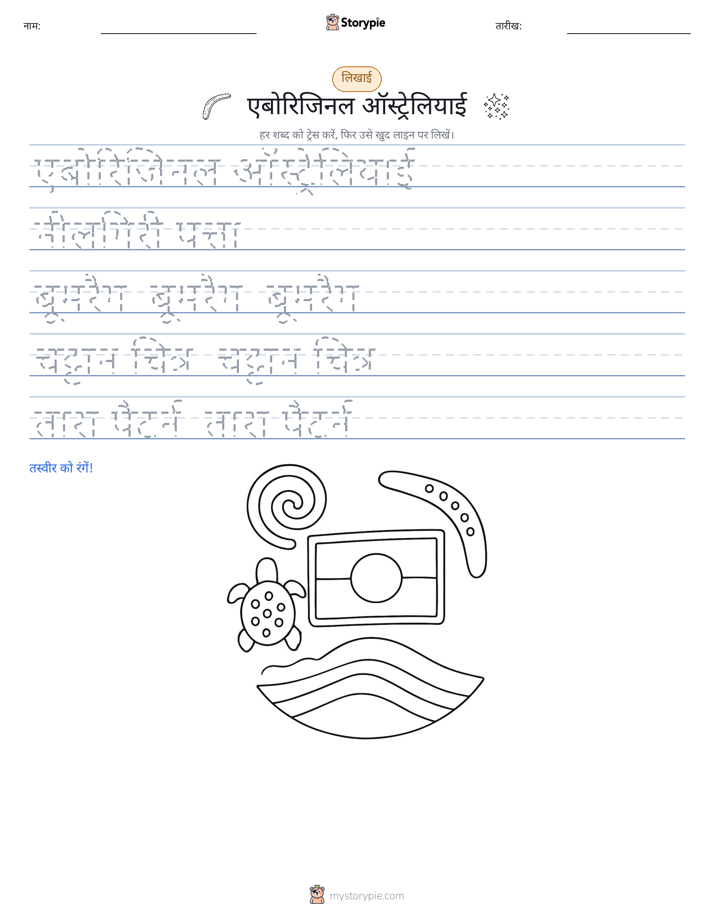 नाम:
Storypie
तारीख:
लिखाई
एबोरिजिनल ऑस्ट्रेलियाई
हर शब्द को ट्रेस करें, फिर उसे खुद लाइन पर लिखें।
एबोरिजिनल ऑस्ट्रेलियाई
नीलगिरी पत्ता
बूमरैंग बूमरैंग बूमरैंग
चट्टान चित्र चट्टान चित्र
तारा पैटर्न तारा पैटर्न
तस्वीर को रंगें!
mystorypie.com